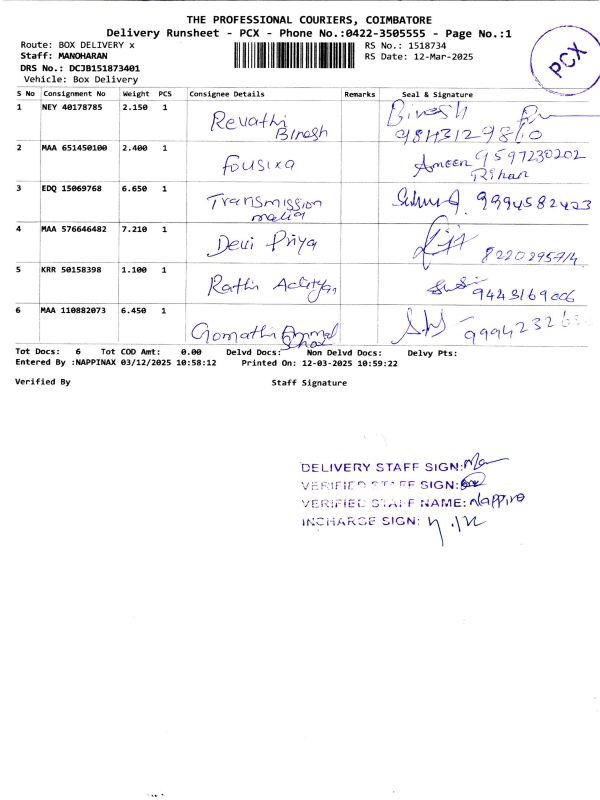 THE PROFESSIONAL COURIERS, COIMBATORE
Delivery Runsheet - PCX - Phone No.:0422-3505555 - Page No.:1
Route: BOX DELIVERY x RS No.: 1518734
Staff: MANOHARAN RS Date: 12-Mar-2025
DRS No.: DCJB151873401
Vehicle: Box Delivery
PCX
S No Consignment No Weight PCS Consignee Details Remarks Seal & Signature
1 NEY 40178785 2.150 1 Revathi Binesh Binesh
2 MAA 651450100 2.400 1 Fousixa Ameen 9597230202
Rihan
3 EDQ 15069768 6.650 1 Transmission
media 9994582423
4 MAA 576646482 7.210 1 Devi Priya
5 KRR 50158398 1.100 1 Rathi 9443169006
6 MAA 110882073 6.450 1 Gomathi Ammal
Tot Docs: 6 Tot COD Amt: 0.00 Delvd Docs: Non Delvd Docs: Delvy Pts:
Entered By :NAPPINAX 03/12/2025 10:58:12 Printed On: 12-03-2025 10:59:22
Verified By Staff Signature
DELIVERY STAFF SIGN:
VERIFIED STAFF SIGN:
VERIFIED STAFF NAME:
INCHARGE SIGN: